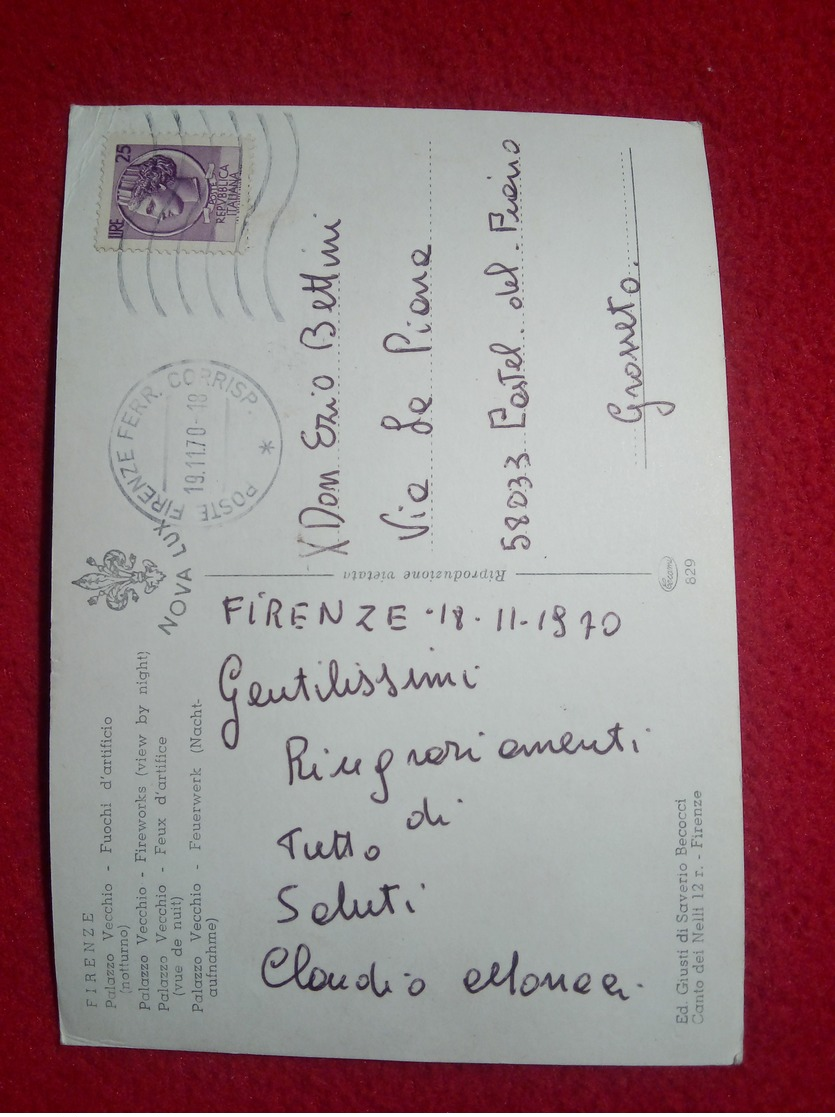 FIRENZE
Palazzo Vecchio - Fuochi d'artificio
(notturno)
Palazzo Vecchio - Fireworks (view by night)
Palazzo Vecchio - Feux d'artifice
(vue de nuit)
Palazzo Vecchio - Feuerwerk (Nacht-
aufnahme)
NOVA LUX
FIRENZE 18-11-1970
Gentilissimi
Ringraziamenti
di
Tutto
Saluti
Claudio
Ed. Giusti di Saverio Becocci
Canto dei Nelli 12 r. - Firenze
Riproduzione vietata
829
LIRE 25
POSTE
REPVBBLICA
ITALIANA
POSTE FIRENZE FERR. CORRISP. *
19.11.70-18
X Don Ezio Bettini
Via Le Piane
58033 Castel. del. Piano
Grosseto.